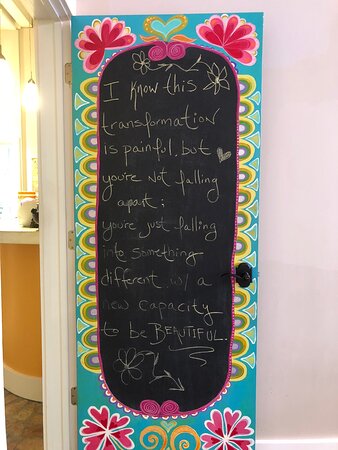 I know this
transformation
is painful, but
you're not falling
apart;
you're just falling
into something
different w/ a
new capacity
to be BEAUTIFUL.